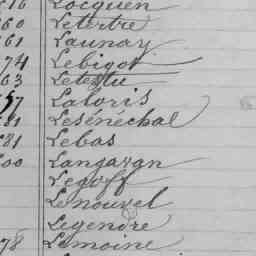 Locquen
60 Letertre
61 Launay
74 Lebigot
63 Letestu
57 Laloris
81 Lesénéchal
81 Lebas
00 Langavan
Legoff
Lenouvel
Legendre
78 Lemoine